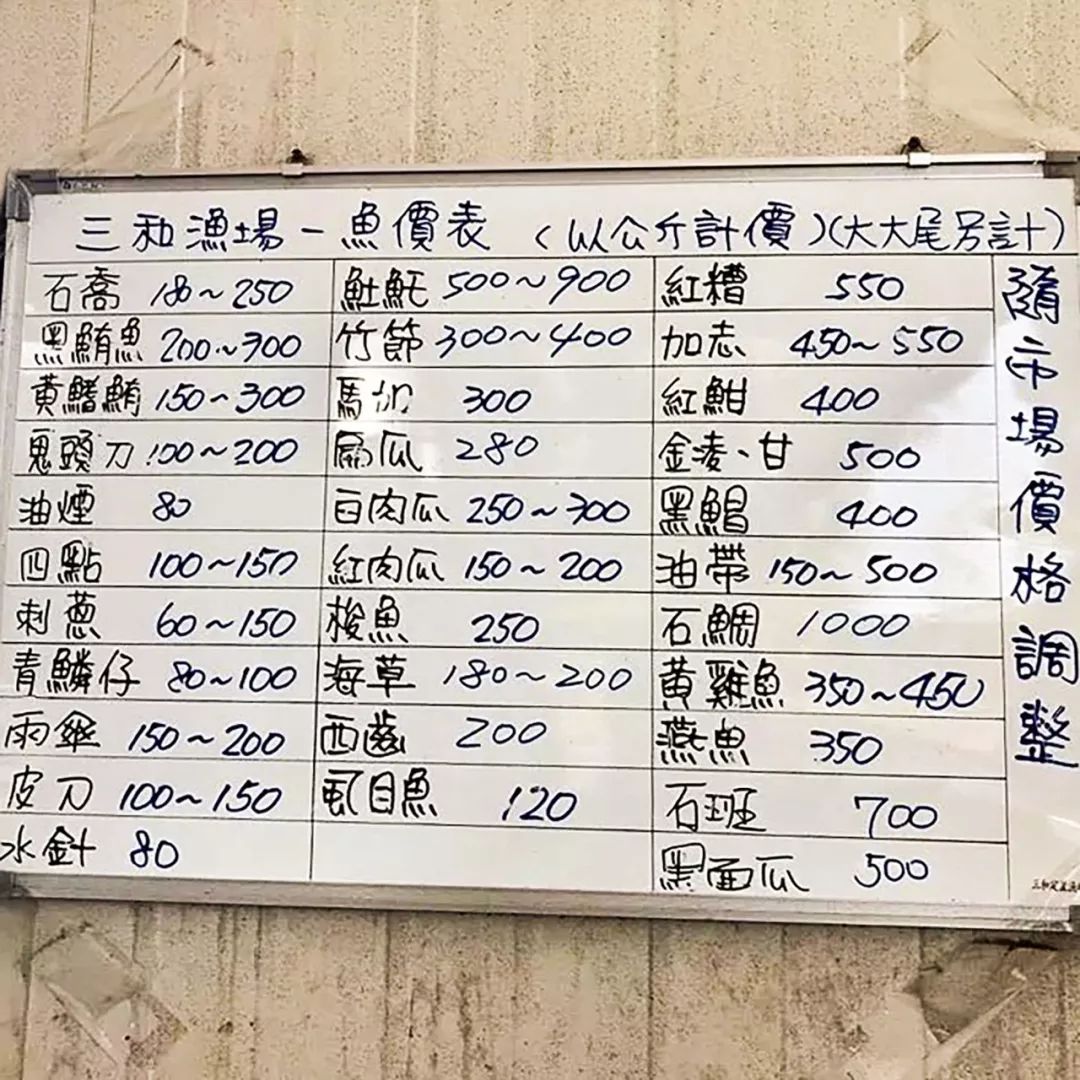 三和漁場-魚價表 (以公斤計價)(大大尾另計)
石喬 180~250
黑鮪魚 200~700
黃鰭鮪 150~300
鬼頭刀 100~200
油煙 80
四點 100~150
刺蔥 60~150
青鱗仔 80~100
雨傘 150~200
皮刀 100~150
水針 80
魠 500~900
竹節 300~400
馬加 300
扁瓜 280
白肉瓜 250~300
紅肉瓜 150~200
梭魚 250
海草 180~200
西齒 200
虱目魚 120
紅糟 550
加志 450~550
紅魽 400
金凌、甘 500
黑鯧 400
油帶 150~500
石鯛 1000
黃雞魚 350~450
燕魚 350
石斑 700
黑面瓜 500
隨市場價格調整